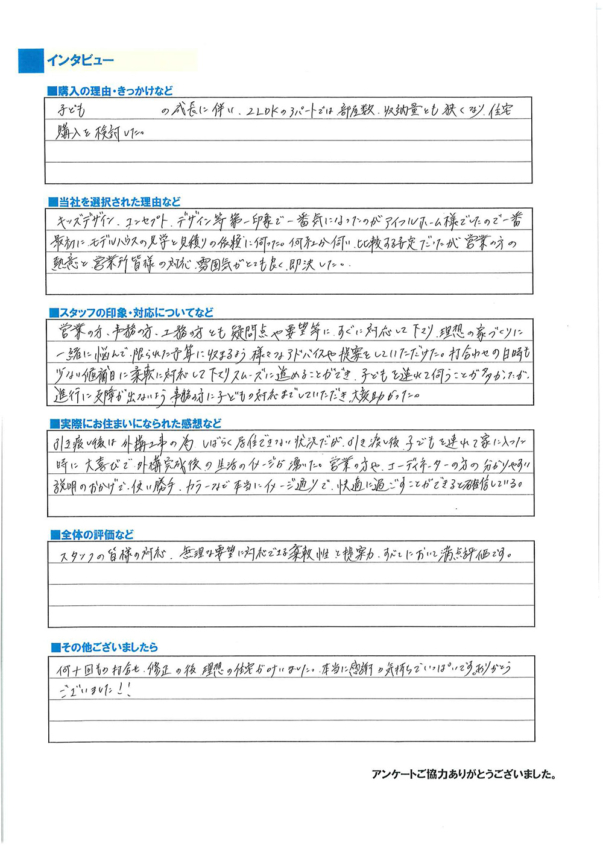 インタビュー
■購入の理由・きっかけなど
子ども の成長に伴い、2LDKのアパートでは部屋数、収納量とも狭くなり、住宅
購入を検討した。
■当社を選択された理由など
キッズデザイン、コンセプト、デザイン等第一印象で一番気になったのがアイフルホーム様でしたので一番
最初にモデルハウスの見学と見積りの依頼に伺った。何社か伺い、比較する予定だったが、営業の方の
熱意と営業所皆様の対応、雰囲気がとても良く、即決した。
■スタッフの印象・対応についてなど
営業の方、事務の方、工務の方とも疑問点や要望等に、すぐに対応して下さり、理想の家づくりに
一緒に悩んで、限られた予算に収まるよう様々なアドバイスや提案をしていただけた。打合わせの日時も
少ない候補日に柔軟に対応して下さりスムーズに進めることができ、子どもを連れて伺うことが多かったが、
進行に支障が出ないよう事務の方に子どもの対応までしていただき、大変助かった。
■実際にお住まいになられた感想など
引き渡し後は外構工事の為、しばらく居住できない状況だが、引き渡し後、子どもを連れて家に入った
時に大喜びで、外構完成後の生活のイメージが湧いた。営業の方や、コーディネーターの方の分かりやすい
説明のおかげで、使い勝手、カラーなど本当にイメージ通りで、快適に過ごすことができると確信している。
■全体の評価など
スタッフの皆様の対応、無理な要望に対応できる柔軟性と提案力、すべてにおいて満点評価です。
■その他ございましたら
何十回もの打合せ、修正の後、理想の住宅が叶いました。本当に感謝の気持ちでいっぱいです。ありがとう
ございました!!
アンケートご協力ありがとうございました。